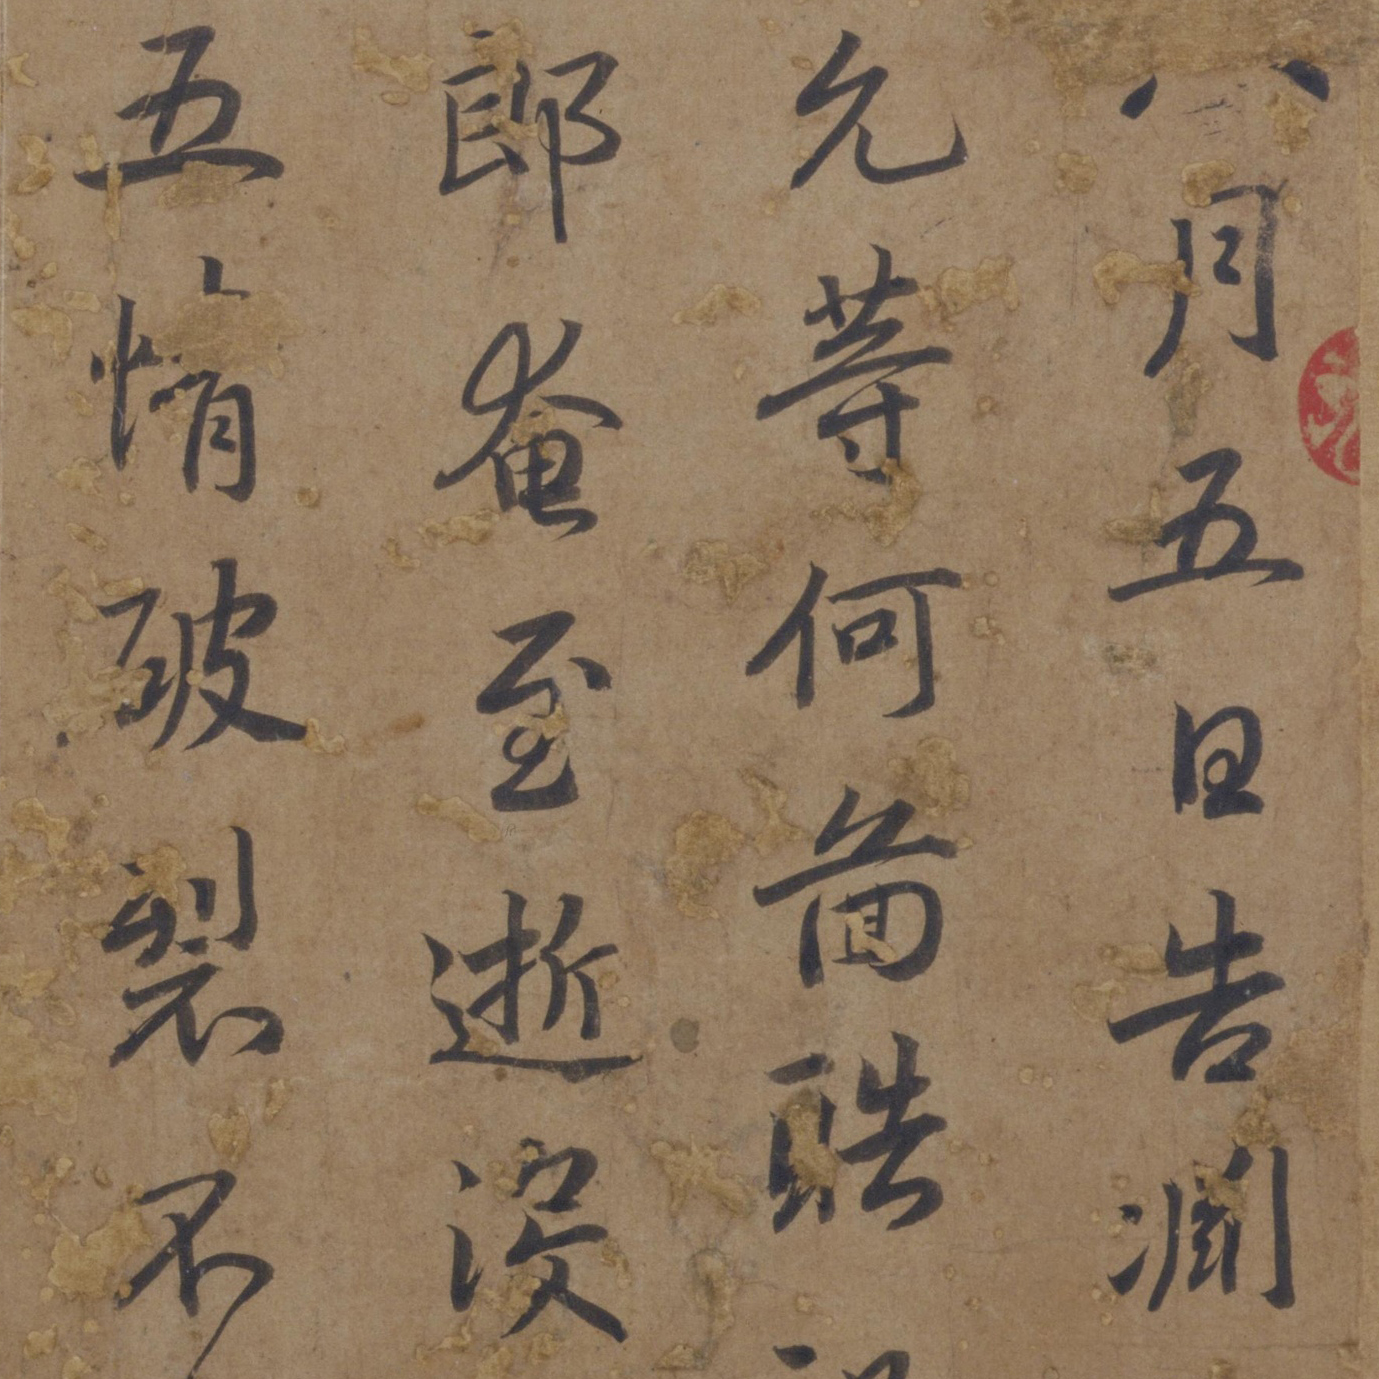 八月五日告淵
允等何圖酷
郎奄至逝沒
五情破裂不